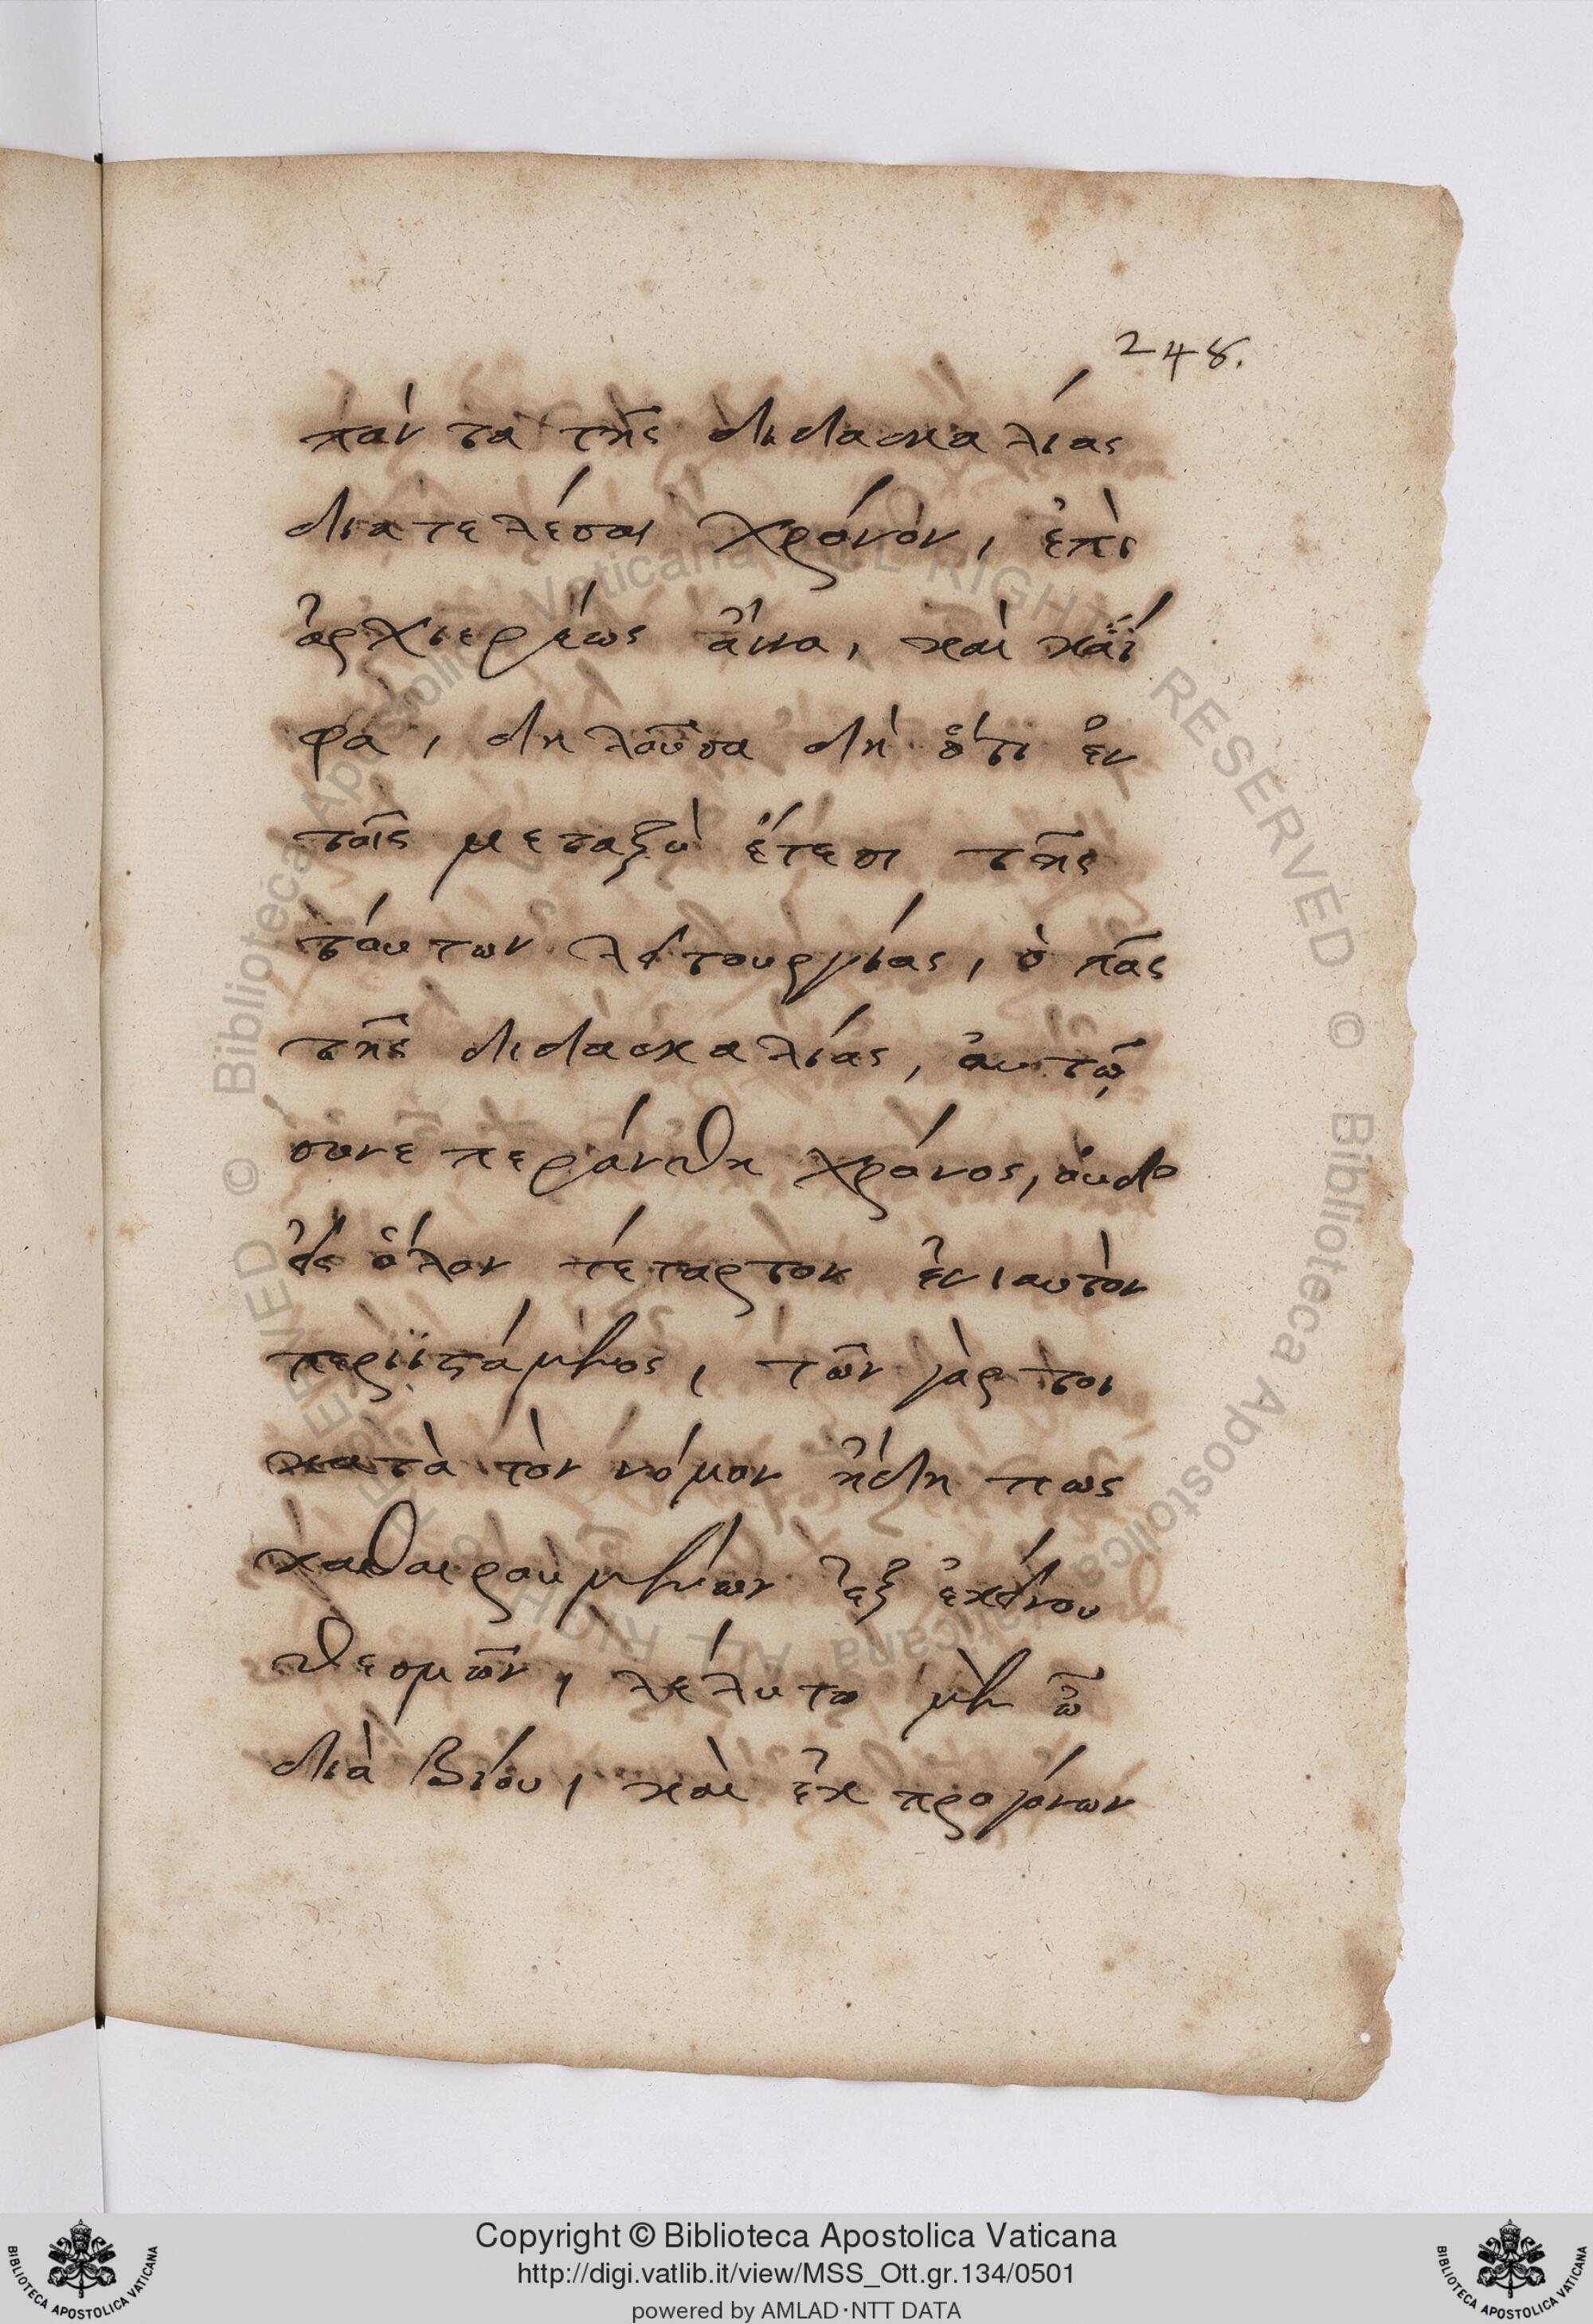 248.
πάντα τῆς διδασκαλίας
διατελέσαι χρόνον, ἐπὶ
ἀρχιερέως ἄννα, καὶ καϊά
φα, δηλοῦσα δὴ ὅτι ἐν
τοῖς μεταξὺ ἔτεσι τῆς
τούτων λειτουργίας, ὁ πᾶς
τῆς διδασκαλίας, αὐτῷ
συνεπεράνθη χρόνος, οὐδ
εἰς ὅλον τέταρτον ἐνιαυτὸν
περιϊστάμενος, τῶν γάρ τοι
κατὰ τὸν νόμον ἤδη πως
καθαιρουμένων ἐξ ἐκείνου
θεσμῶν, λέλυτο μὲν ὧ
διὰ βίου, καὶ ἐκ προγόνων
Copyright © Biblioteca Apostolica Vaticana
http://digi.vatlib.it/view/MSS_Ott.gr.134/0501
powered by AMLAD·NTT DATA
BIBLIOTECA APOSTOLICA VATICANA
BIBLIOTECA APOSTOLICA VATICANA
© Biblioteca Apostolica Vaticana ALL RIGHTS RESERVED © Biblioteca Apostolica Vaticana ALL RIGHTS RESERVED